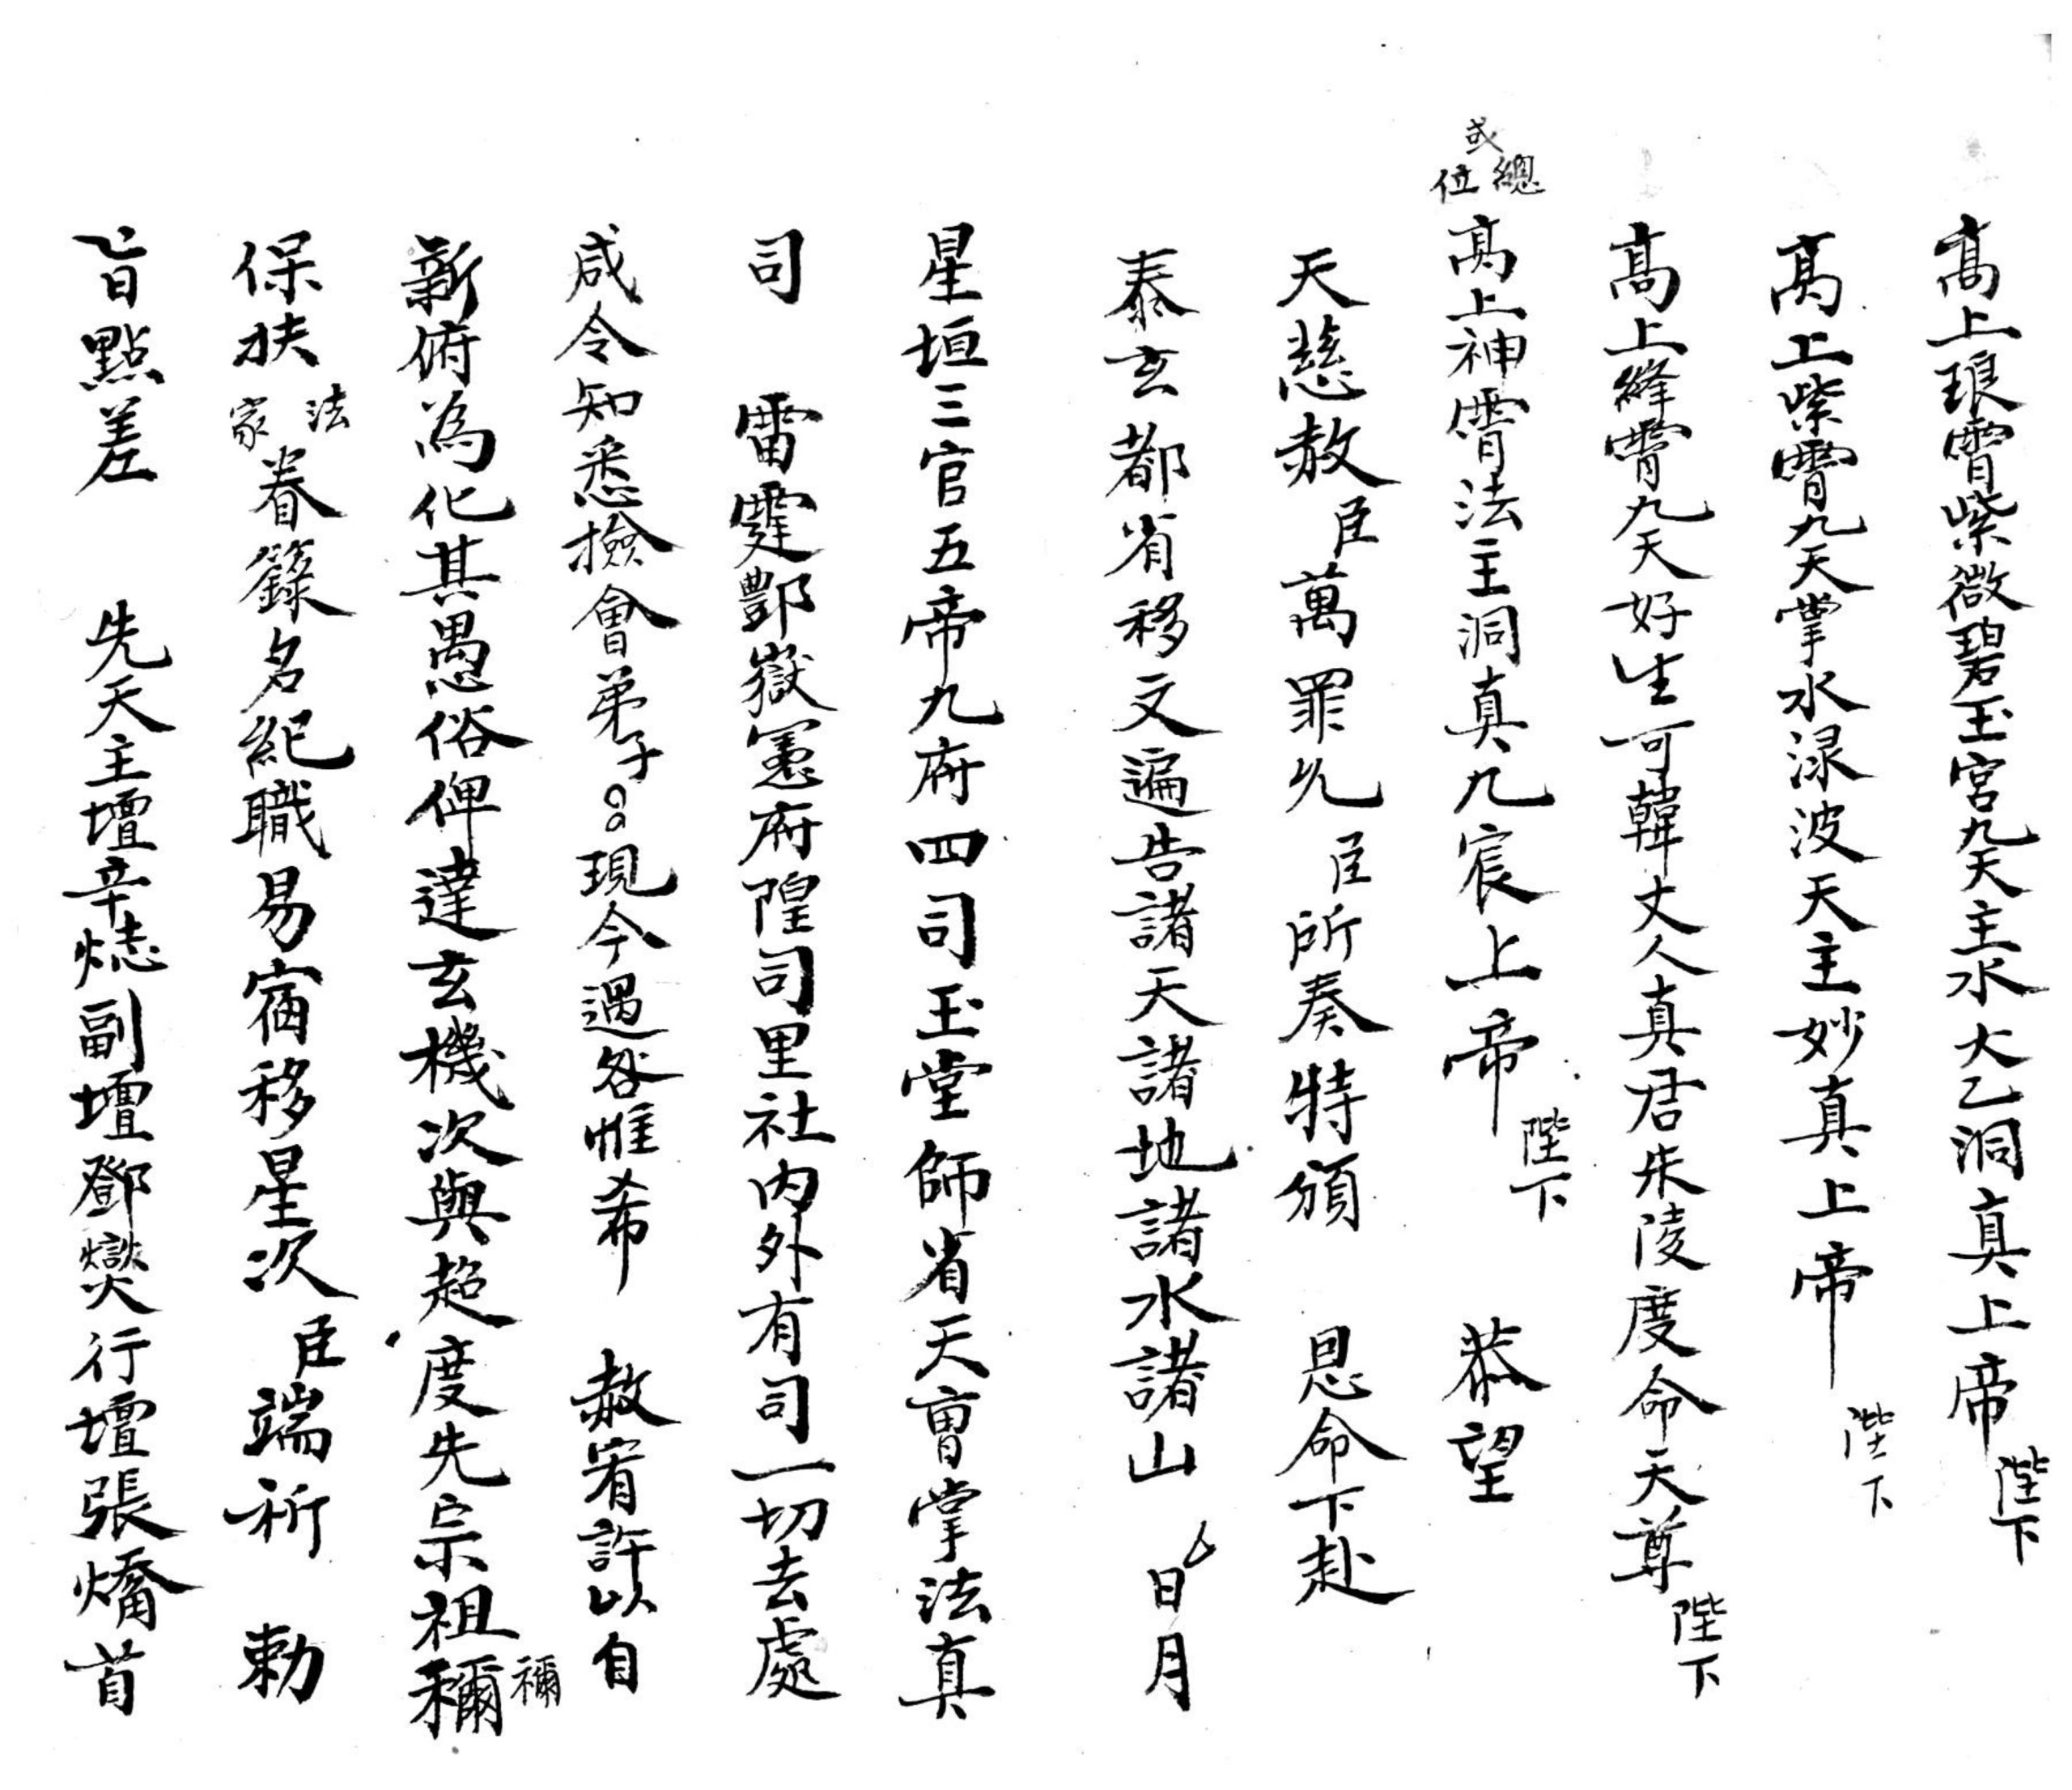 高上琅霄紫微碧玉宮九天主水大乙洞真上帝陛下
高上紫霄九天掌水渌波天主妙真上帝陛下
高上絳霄九天好生可韓丈人真君朱陵度命天尊陛下
或總位高上神霄法主洞真九宸上帝陛下 恭望
天慈赦臣萬罪允臣所奏特頒 恩命下赴
泰玄都省移文遍告諸天諸地諸水諸山日月
星垣三官五帝九府四司玉堂師省天曹掌法真
司 雷霆酆嶽憲府隍司里社內外有司一切去處
咸令知悉撿會弟子 現今遇咎惟希 赦宥許以自
新俯為化其愚俗俾達玄機次與超度先宗祖禰禰
保扶法家眷籙名紀職易宿移星次臣端祈 勅
旨點差 先天主壇辛 副壇鄧燮行壇張燆首